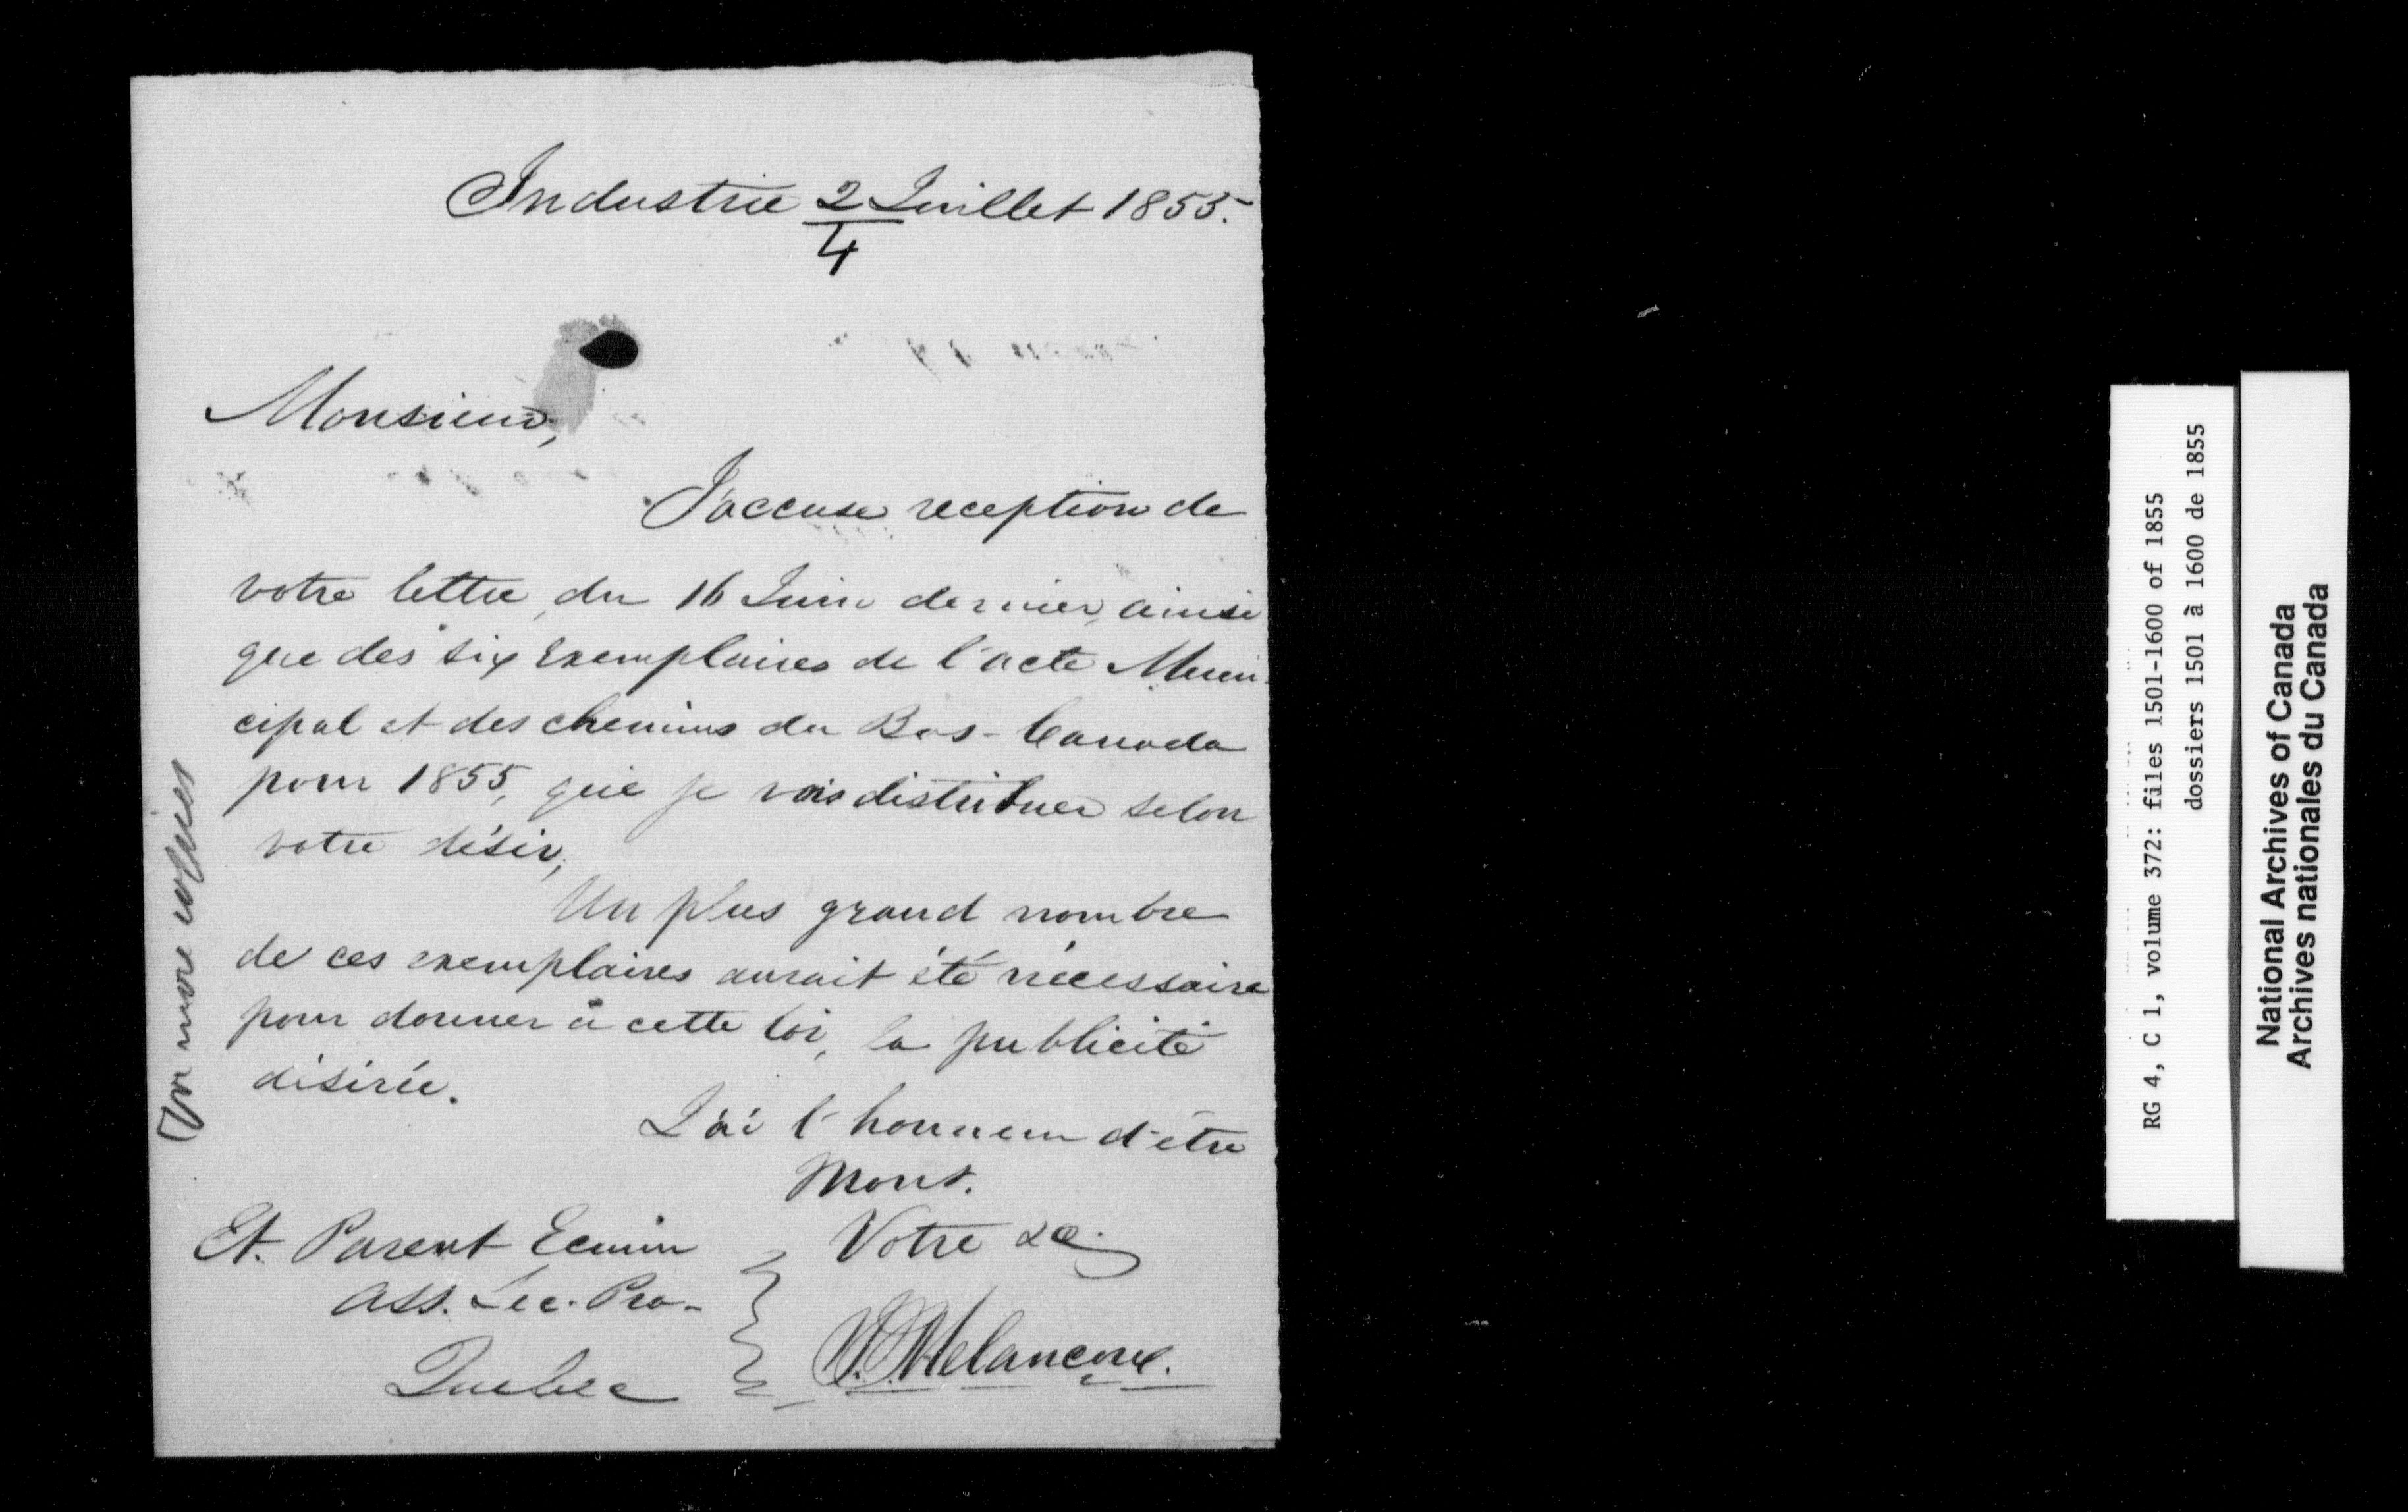 Industrie 2 Juillet 1855.
4
Monsieur,
J'accuse reception de
votre lettre, du 16 Juin dernier, ainsi
que des six Exemplaires de l'acte Muni-
cipal et des chemins du Bas-Canada
pour 1855, que je vais distribuer selon
votre désir,
Un plus grand nombre
de ces exemplaires aurait été nécessaire
pour donner à cette loi, la publicité
désirée.
J'ai l'honneur d'être
Mons.
Votre &c.
Et. Parent Ecuier
Ass. Sec. Pro-
Quebec
Melançon.
more copies
RG 4, C 1, volume 372: files 1501-1600 of 1855
dossiers 1501 à 1600 de 1855
National Archives of Canada
Archives nationales du Canada